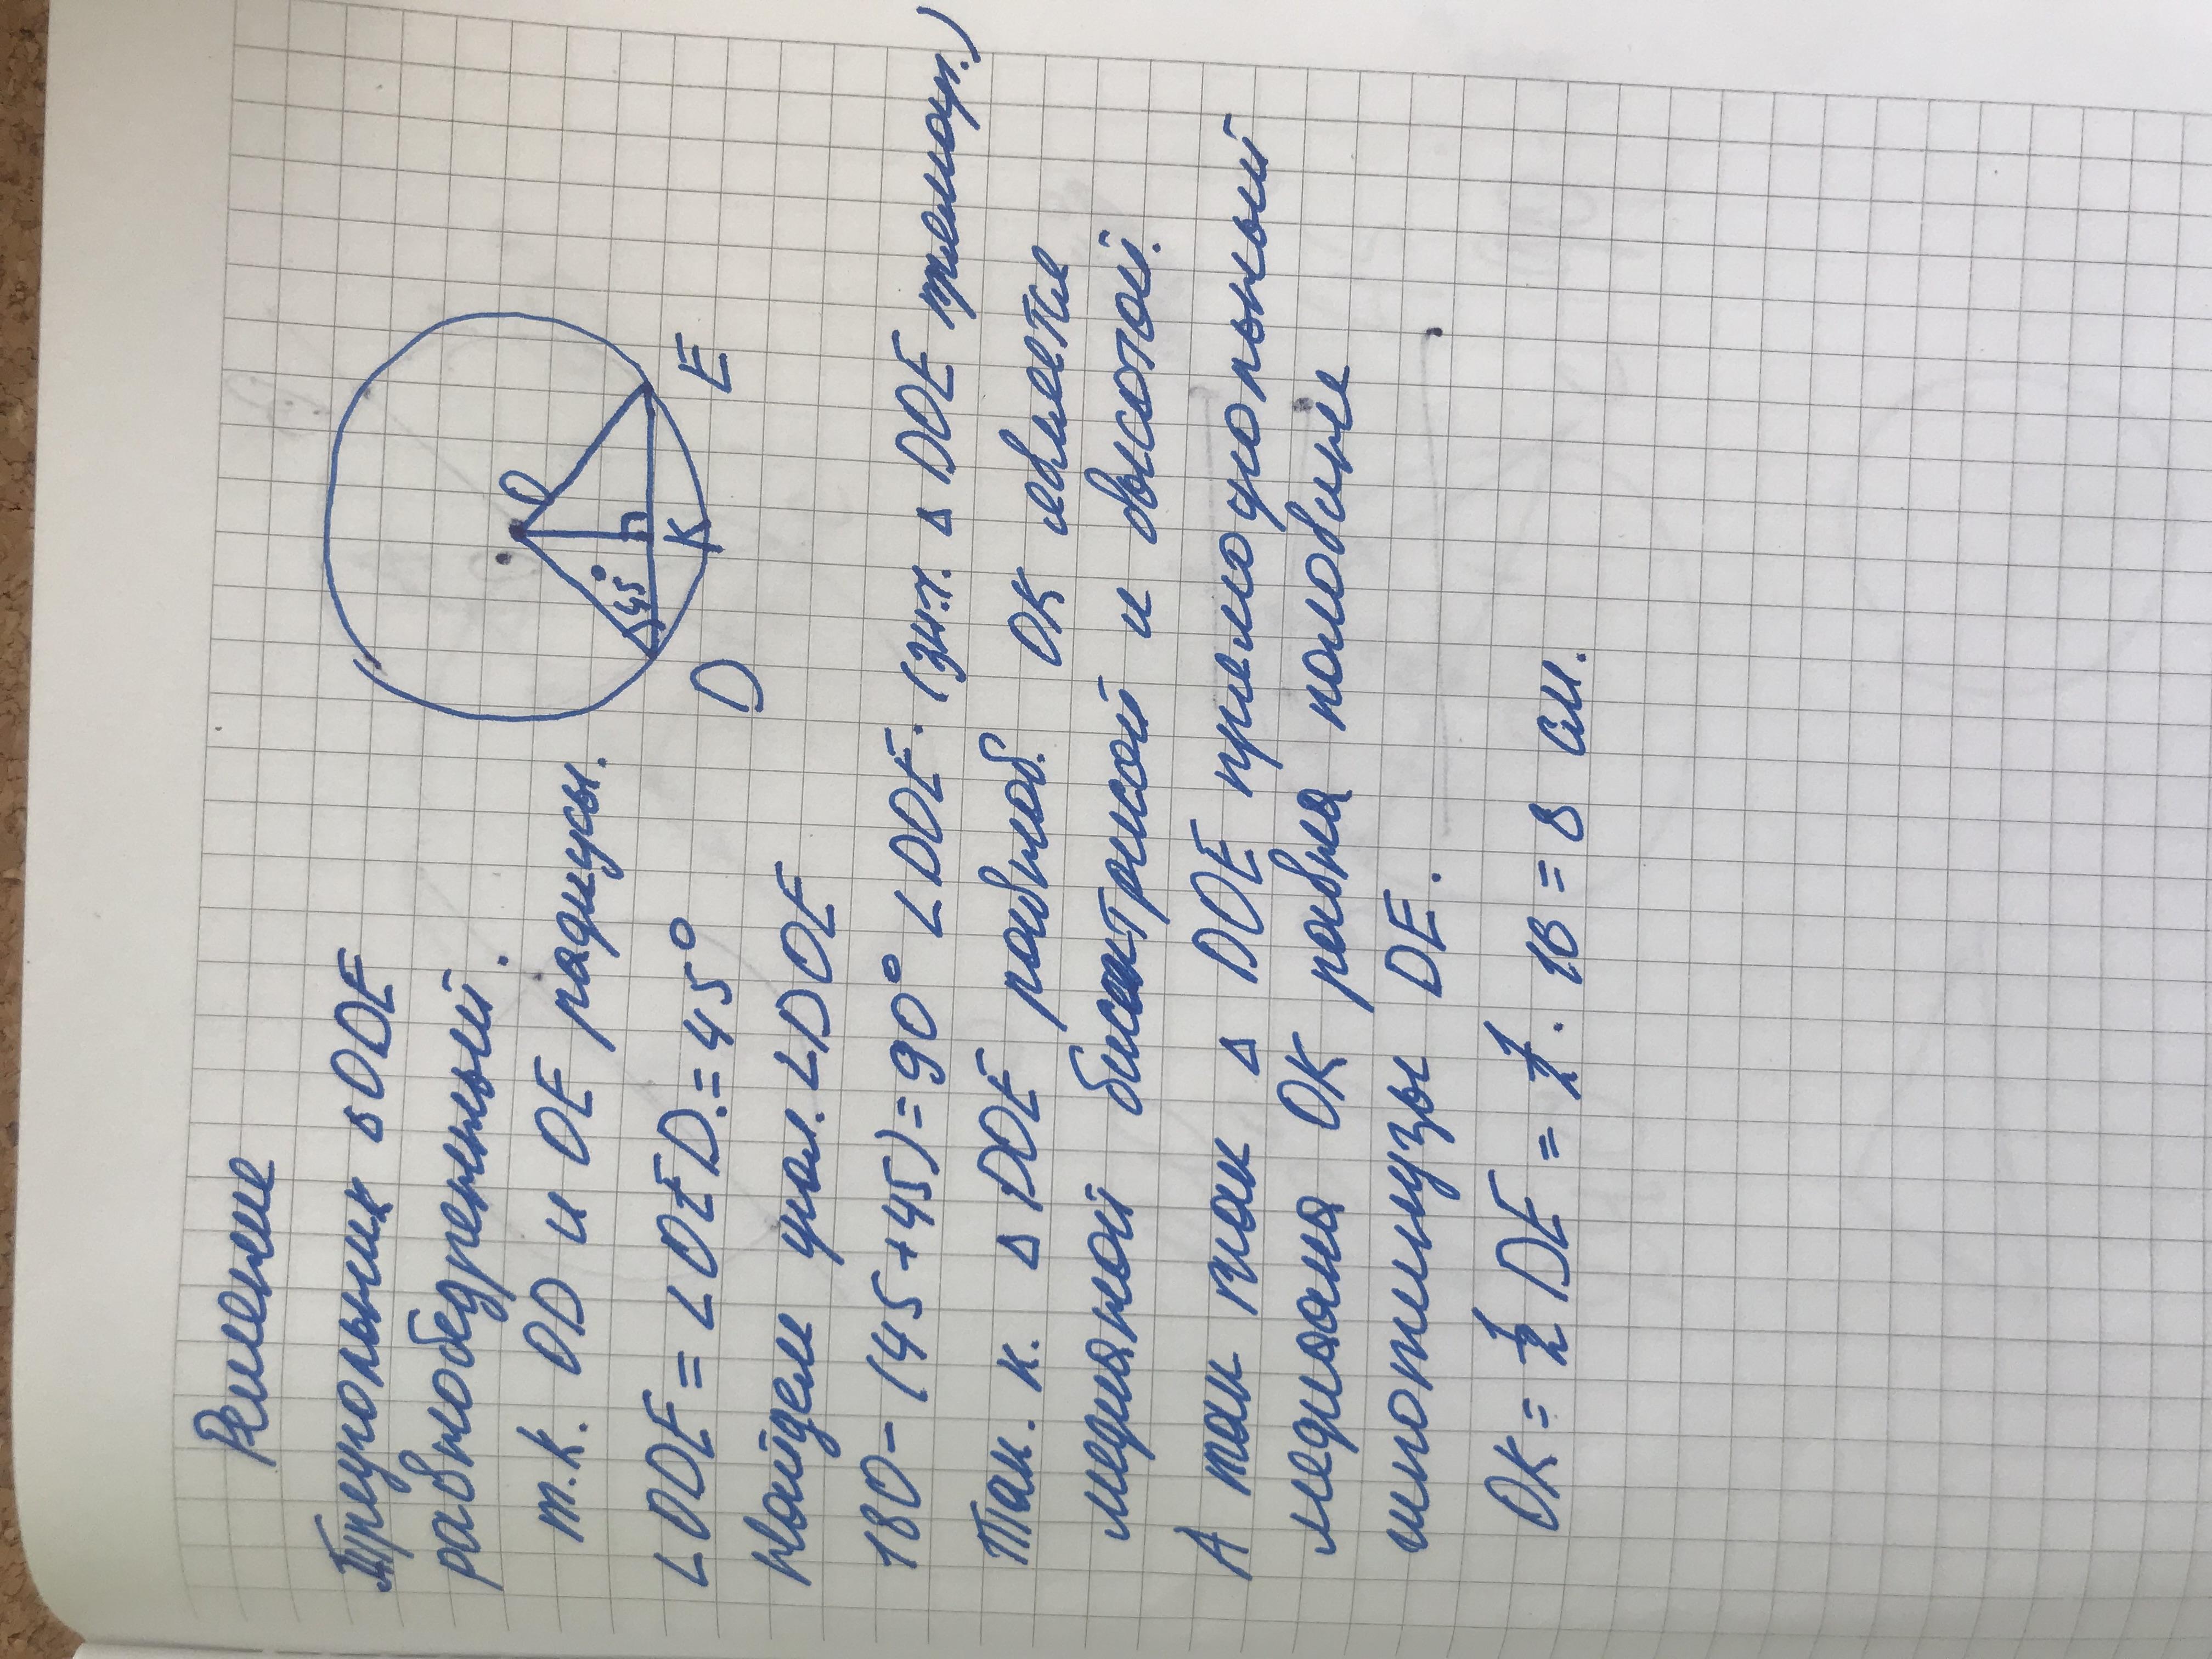 Решение
Треугольник △ODE
равнобедренный.
т.к. OD и OE радиусы.
∠ODE = ∠OED.=45°
Найдем угол.∠DOE
180-(45+45)=90° ∠DOE. (знт. △ DOE прямоуг.)
Так. к. △ DOE равноб. OK является
медианой биссектрисой и высотой.
А так как △ DOE прямоугольный
медиана OK равна половине
гипотенузы DE.
OK = 1/2 DE = 1/2 · 16 = 8 см.
O
45°
D
K
E